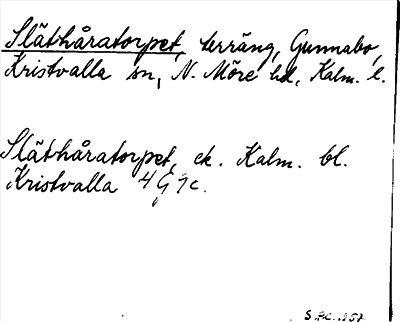 Släthåratorpet, terräng, Gunnabo,
Kristvalla sn, N. Möre hd, Kalm. l.
Släthåratorpet, ek. Kalm. bl.
Kristvalla 4 G 7c.